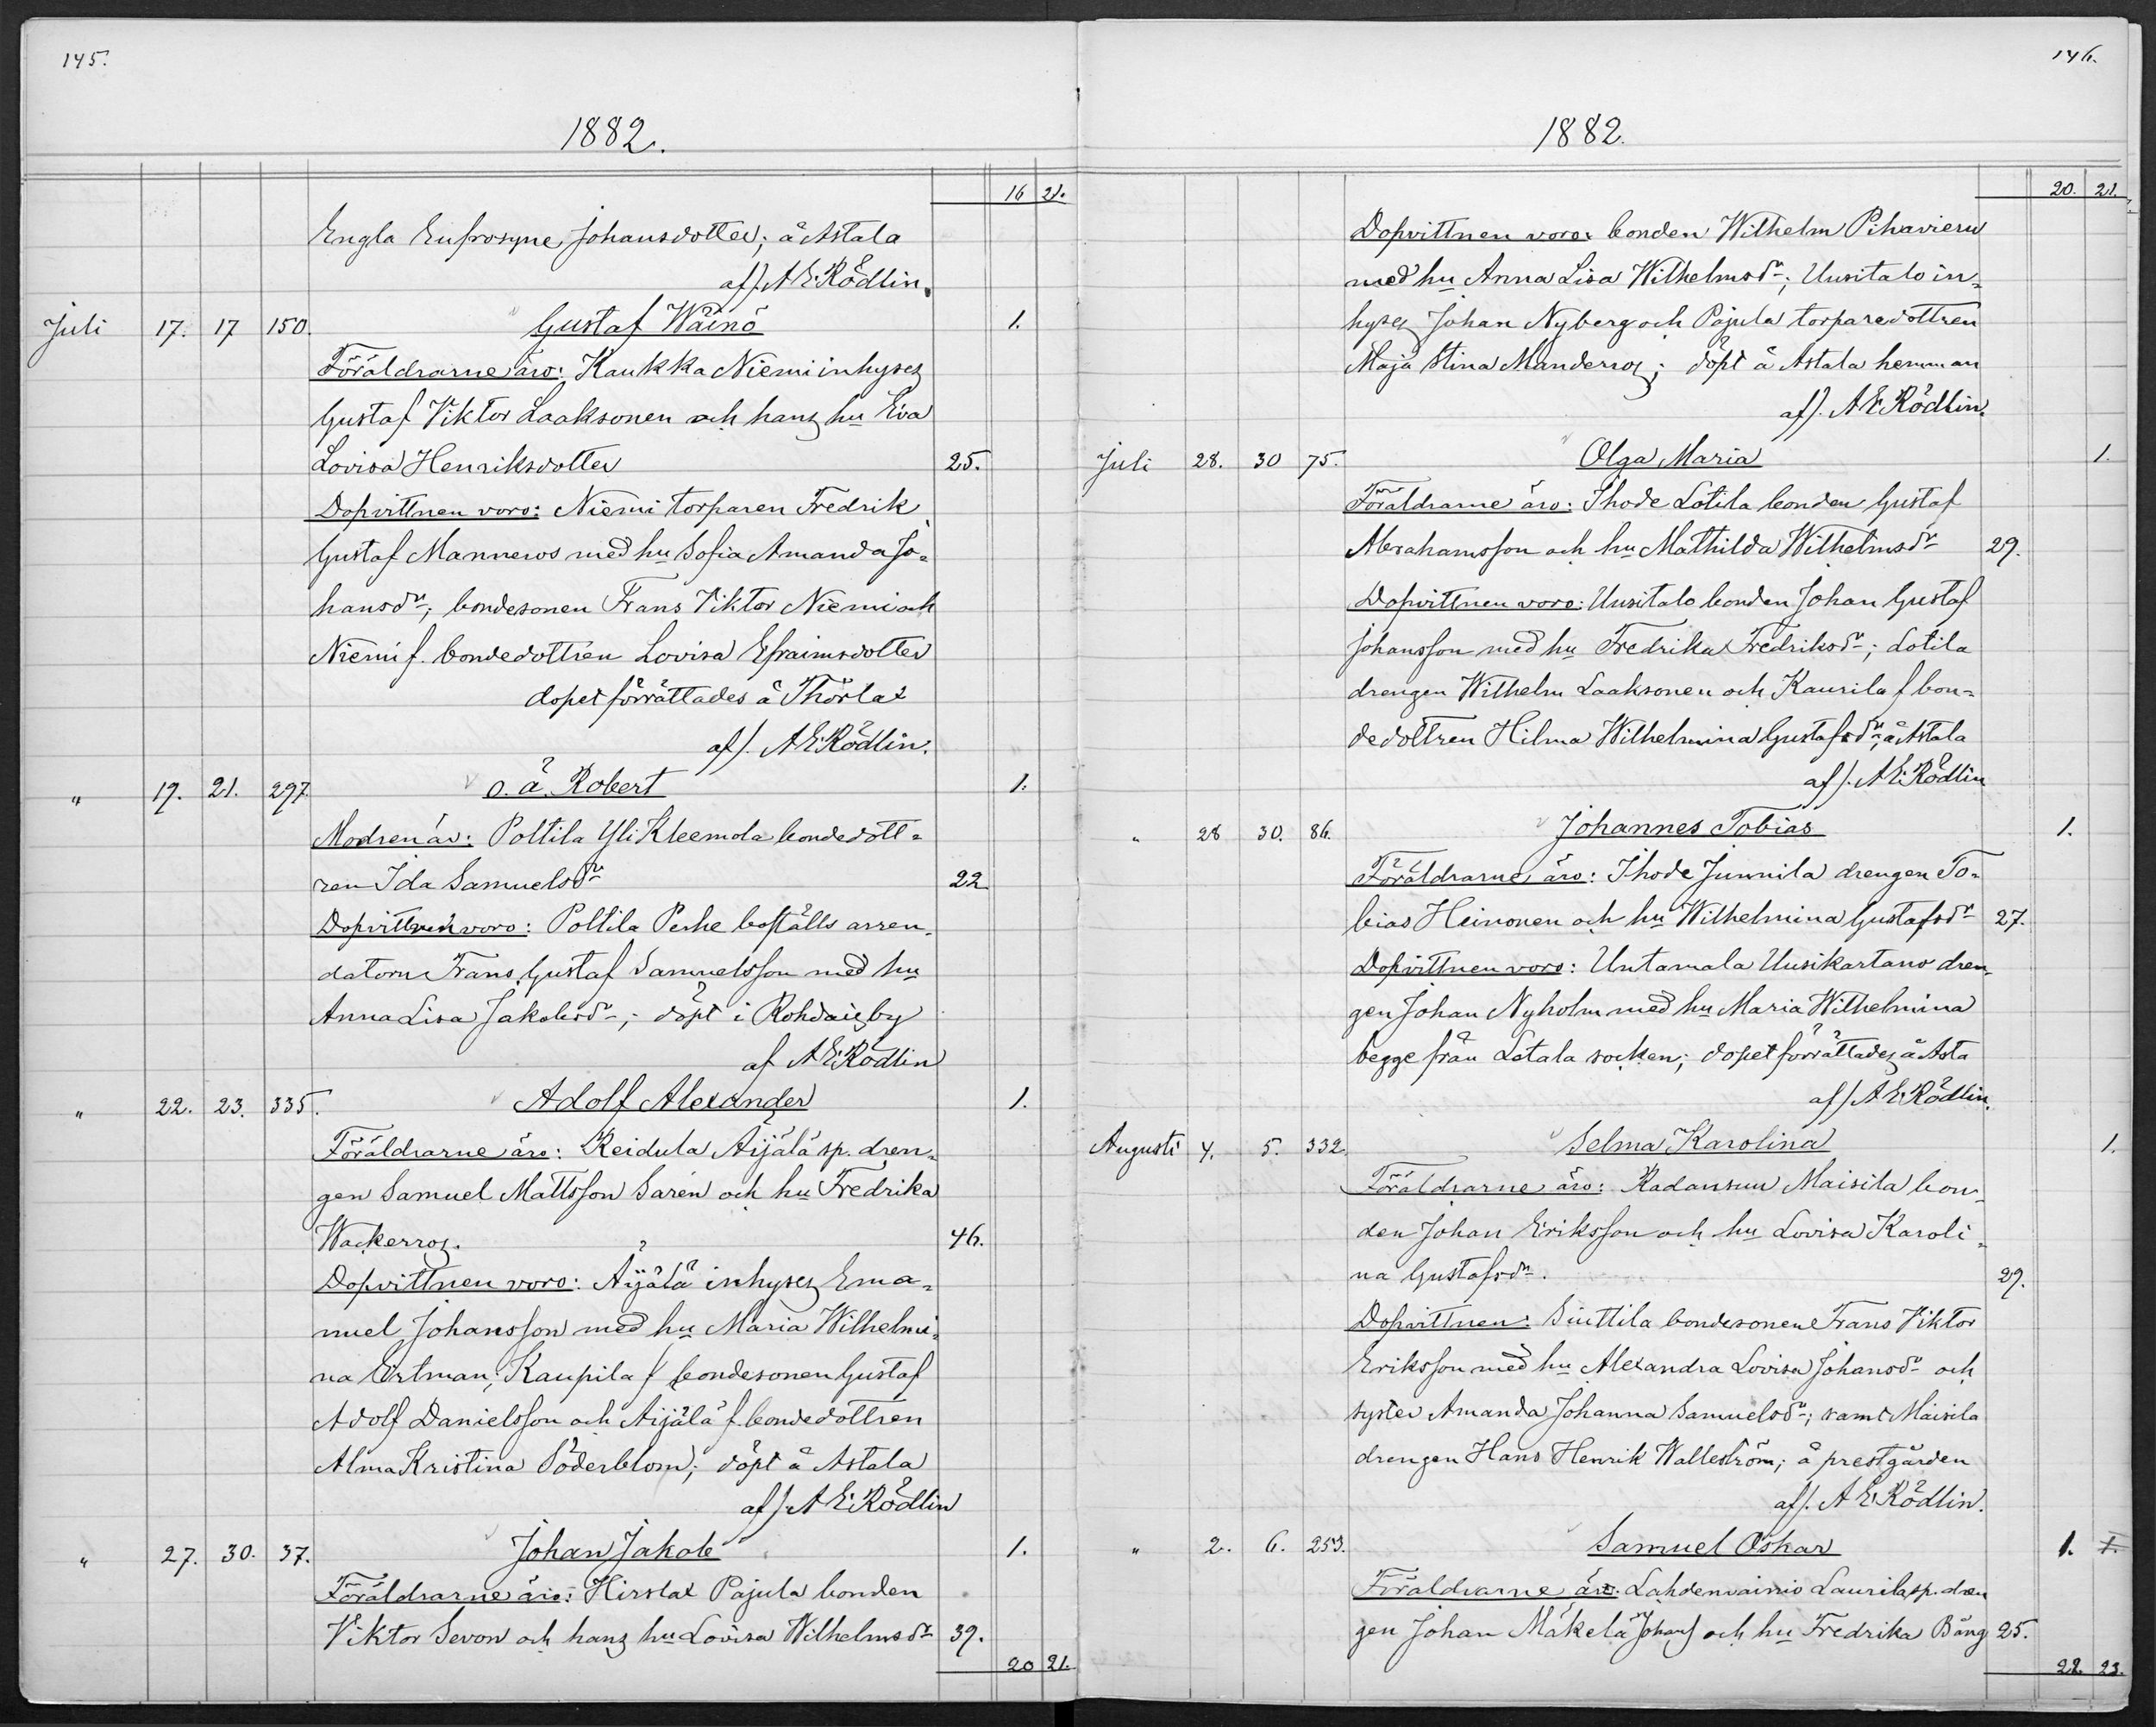 145.
1882.
16 21.
Engla Eufrosyne Johansdotter; å Astala
af/. A E. Rödlin.
Juli 17. 17 150. Gustaf Wäinö 1.
Föräldrarne äro: Kaukka Niemi inhyses
Gustaf Viktor Laaksonen och hans hu Eva
Lovisa Henriksdotter 25.
Dopvittnen voro: Niemi torparen Fredrik
Gustaf Manneros med hu Sofia Amanda Jo-
hansdr; bondesonen Frans Viktor Niemi och
Niemi f. bondedottren Lovisa Efraimsdotter
dopet förrättades å Thorlax
af/. A E. Rödlin.
" 19. 21. 297. o. ä. Robert 1.
Modren är: Poltila Yli Kleemola bondedott-
ren Ida Samuelsdr 22
Dopvittnen voro: Poltila Perhe boställs arren-
datorn Frans Gustaf Samuelsson med hu
Anna Lisa Jakobsdr; döpt i Rohdais by
af A E. Rödlin
" 22. 23. 335. Adolf Alexander 1.
Föräldrarne äro: Reidula Äijälä sp. dren-
gen Samuel Mattsson Saren och hu Fredrika
Wackerros. 46.
Dopvittnen voro: Äijälä inhyses Ema-
nuel Johansson med hu Maria Wilhelmi-
na Ertman; Kaupila f bondesonen Gustaf
Adolf Danielsson och Äijälä f. bondedottren
Alma Kristina Söderblom; döpt å Astala
af/. A E. Rödlin
" 27. 30. 37. Johan Jakob 1.
Föräldrarne äro: Hirslax Pajula bonden
Viktor Sevon och hans hu Lovisa Wilhelmsdr 39.
20 21.
146.
1882.
20. 21.
Dopvittnen voro: bonden Wilhelm Pihavieru
med hu Anna Lisa Wilhelmsdr; Uusitalo in-
hyses Johan Nyberg och Pajula torparedottren
Maja Stina Manderros; döpt å Astala hemman
af/. A E. Rödlin.
Juli 28. 30 75. Olga Maria 1.
Föräldrarne äro: Ihode Lotila bonden Gustaf
Abrahamsson och hu Mathilda Wilhelmsdr 29.
Dopvittnen voro: Uusitalo bonden Johan Gustaf
Johansson med hu Fredrika Fredriksdr; Lotila
drengen Wilhelm Laaksonen och Kaurila f bon-
dedottren Hilma Wilhelmina Gustafsdr; å Astala
af/. A E. Rödlin
" 28 30. 86. Johannes Tobias 1.
Föräldrarne äro: Ihode Junnila drengen To-
bias Heinonen och hu Wilhelmina Gustafsdr 27.
Dopvittnen voro: Untamala Uusikartano dren-
gen Johan Nyholm med hu Maria Wilhelmina
begge från Letala socken; dopet förrättades å Asta
af/ A E. Rödlin.
Augusti 4. 5. 332. Selma Karolina 1.
Föräldrarne äro: Radansuu Maisila bon-
den Johan Eriksson och hu Lovisa Karoli-
na Gustafsdr. 29.
Dopvittnen: Siuttila bondesonen Frans Viktor
Eriksson med hu Alexandra Lovisa Johansdr och
syster Amanda Johanna Samuelsdr; samt Maisila
drengen Hans Henrik Wallström; å prestgården
af/. A E. Rödlin.
" 2. 6. 253. Samuel Oskar 1. 1.
Föräldrarne äro: Lahdenvainio Laurila sp. dren
gen Johan Mäkelä Johans och hu Fredrika Bäng 25.
22. 23.